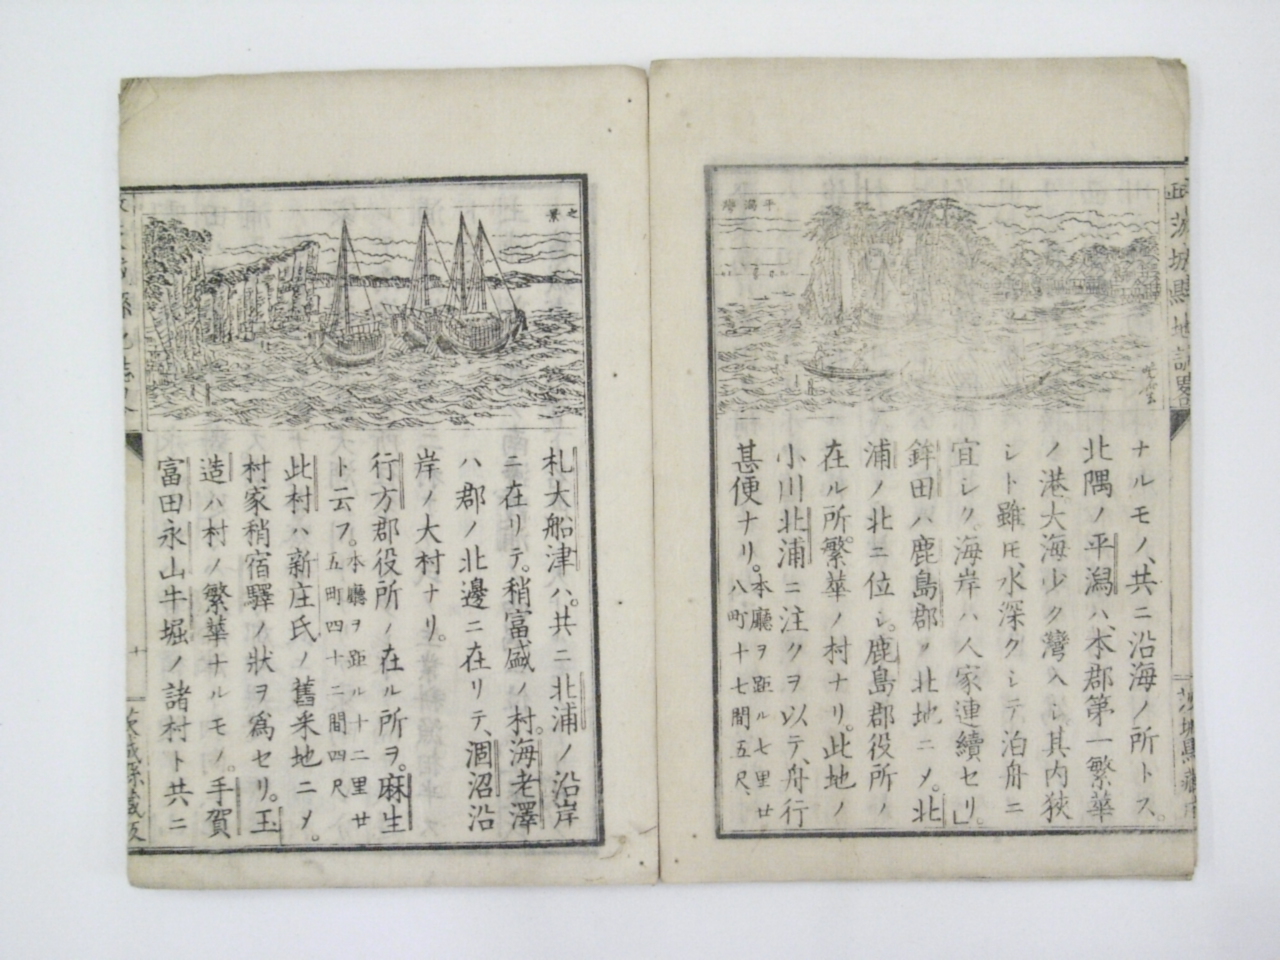 茨城縣地誌略
平潟灣
ナルモノ、共ニ沿海ノ所トス。
北隅ノ平潟ハ、本郡第一繁華
ノ港、大海少ク灣入シ其内狹
シト雖𪜈、水深クシテ泊舟ニ
宜シク。海岸ハ人家連續セリ。」
鉾田ハ鹿島郡ノ北地ニメ。北
浦ノ北ニ位シ。鹿島郡役所ノ
在ル所。繁華ノ村ナリ。此地ノ
小川北浦ニ注クヲ以テ、舟行
甚便ナリ。本廳ヲ距ル七里廿
八町十七間五尺、
之景
札大船津ハ。共ニ北浦ノ沿岸
ニ在リテ。稍富盛ノ村。海老澤
ハ郡ノ北邊ニ在リテ、涸沼沿
岸ノ大村ナリ。
行方郡役所ノ在ル所ヲ。麻生
ト云フ。本廳ヲ距ル十二里廿
五町四十二間四尺
此村ハ新庄氏ノ舊采地ニメ。
村家稍宿驛ノ狀ヲ爲セリ。玉
造ハ村ノ繁華ナルモノ。手賀
富田永山牛堀ノ諸村ト共ニ
十
茨城縣藏版